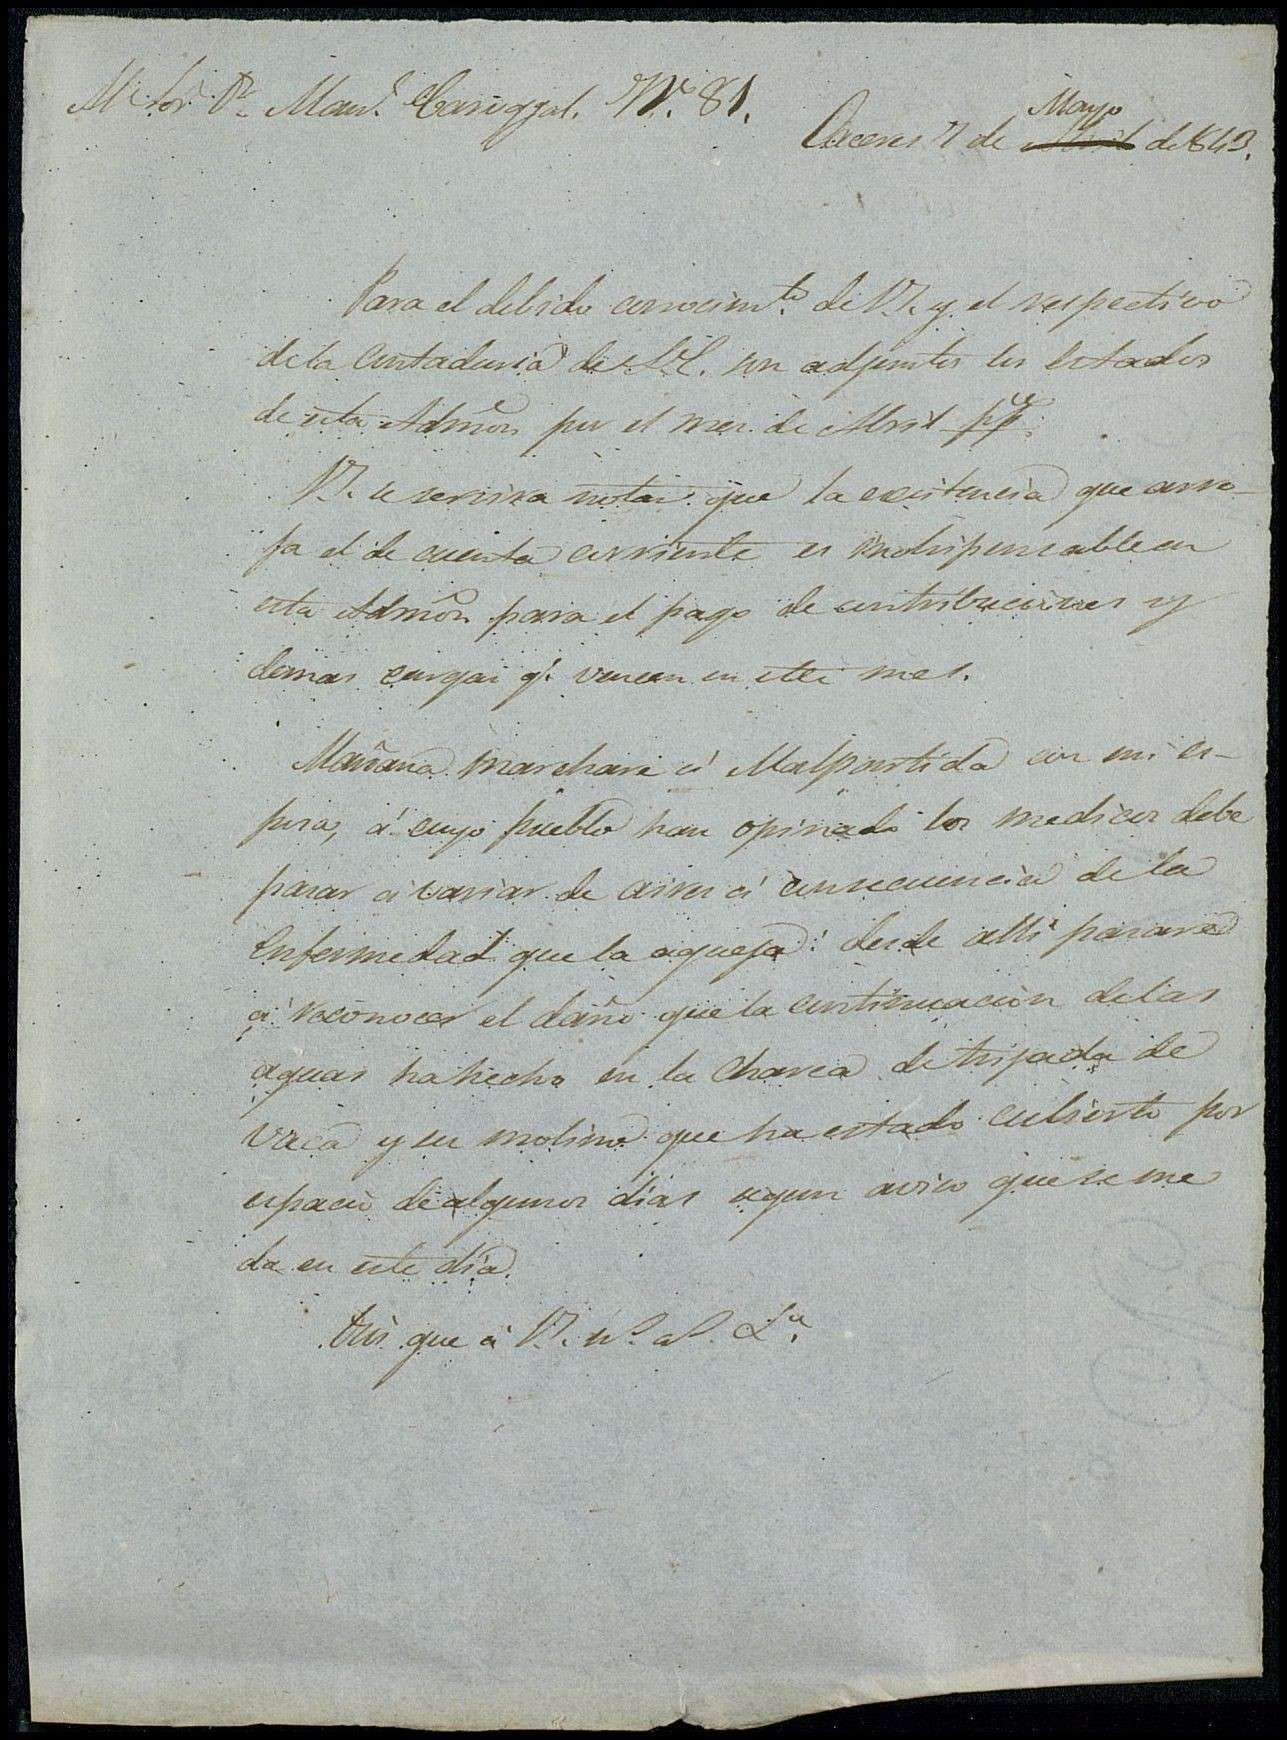 Sor. Dn. Manl. N.º 81.
Caceres 7 de Mayo de 1843.
Para el debido conocimto. de V. y el respectivo
de la Contaduria de S.E. son adjuntos los estados
de esta Admon. por el mes de Abril pp.
V. se servira notar que la existencia que arro-
ja el de cuenta corriente es indispensable en
esta Admon. para el pago de contribuciones y
demas cargas q. vencen en este mes.
Mañana marchare á Malpartida con mi es-
posa, á cuyo pueblo han opinado los medicos debe
pasar á variar de aires á consecuencia de la
enfermedad que la aqueja: desde alli pasare
á reconocer el daño que la continuacion de las
aguas ha hecho en la Charca de tripada de
vaca y su molino que ha estado cubierto por
espacio de algunos dias segun aviso que se me
da en este dia.
que á V.